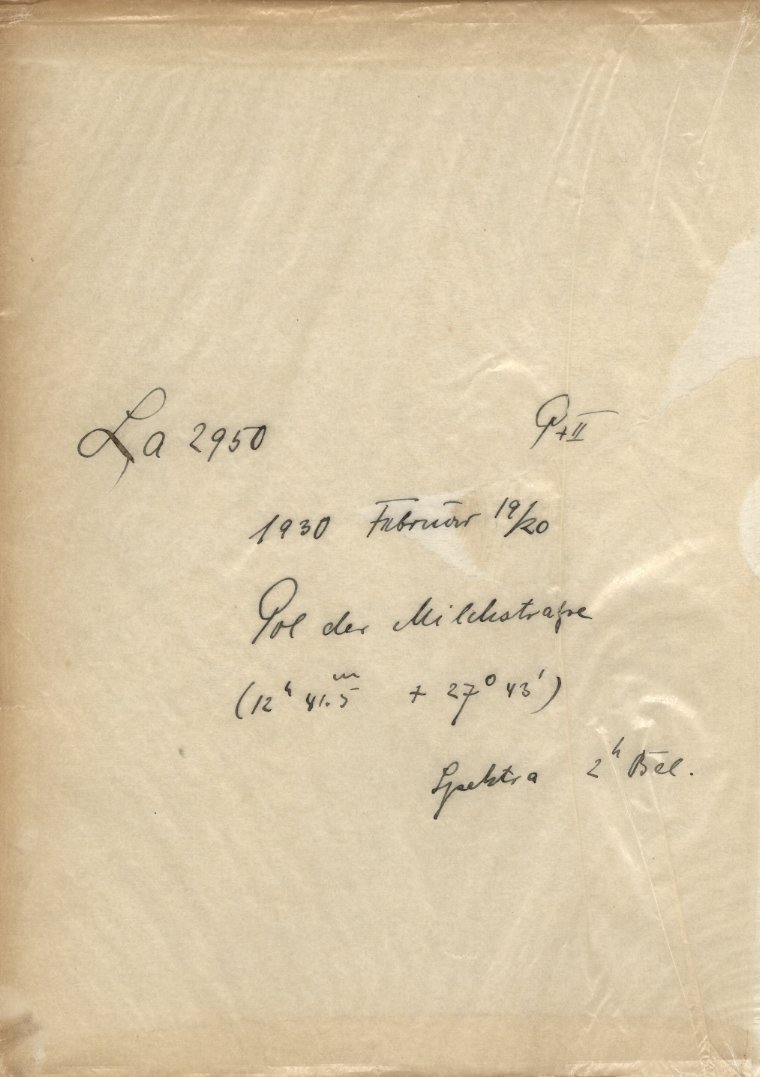 La 2950 P+II
1930 Februar 19/20
Pol der Milchstraße
(12ʰ 41.5ᵐ + 27° 43')
Spektra 2ʰ Bel.